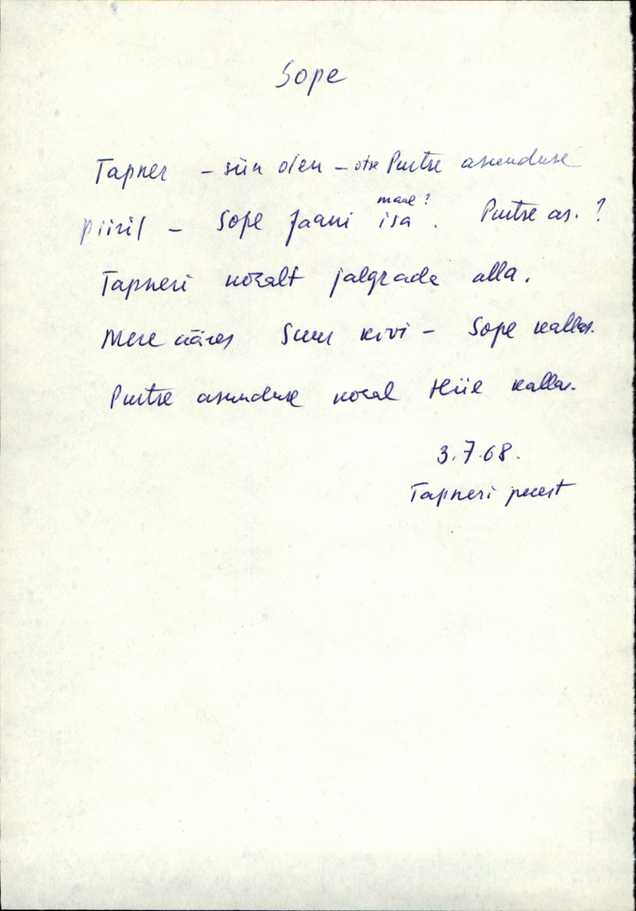 Sope
Tapner – siin olen – otse Purtse asunduse
piiril – Sope Jaani isa maal? . Purtse as. ?
Tapneri kõrvalt jalgrada alla.
Mere ääres Suur kivi – Sope kallas.
Purtse asunduse kohal Hiie kallas.
3.7.68.
Tapneri perest